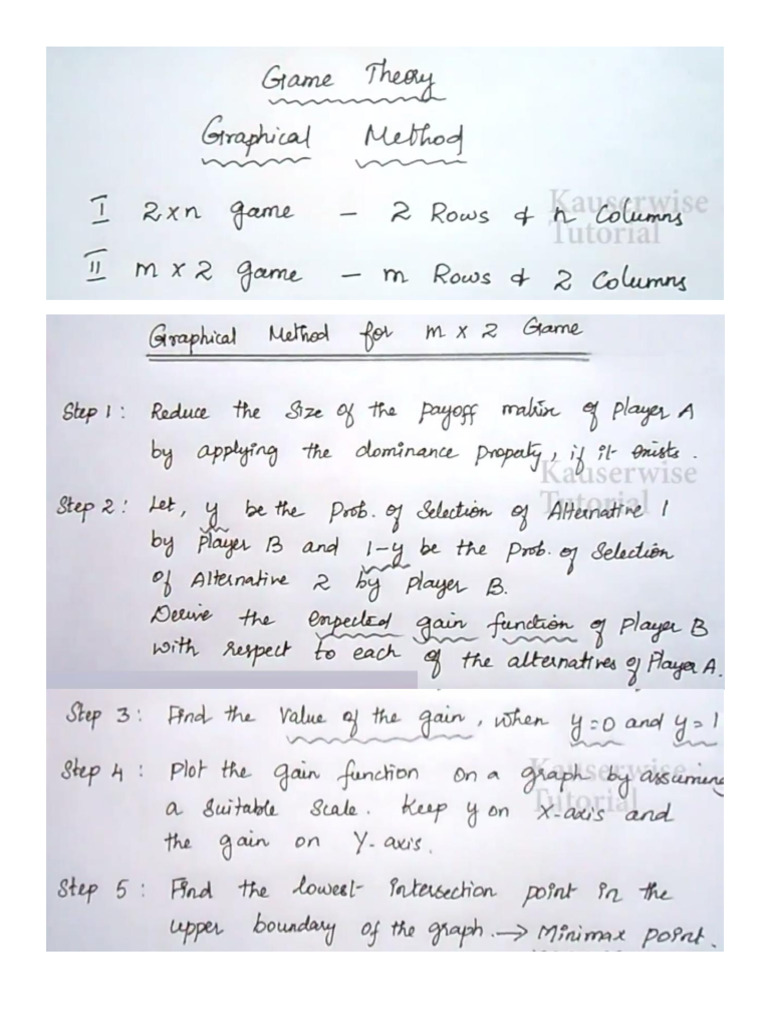 Game Theory
Graphical Method
I 2xn game - 2 Rows & n Columns
II m x 2 game - m Rows & 2 Columns
Kauserwise
Tutorial
Graphical Method for m x 2 Game
Step 1: Reduce the Size of the payoff matrix of player A
by applying the dominance property, if it exists.
Kauserwise
Tutorial
Step 2: Let, y be the Prob. of Selection of Alternative 1
by Player B and 1-y be the Prob. of Selection
of Alternative 2 by Player B.
Derive the expected gain function of Player B
with respect to each of the alternatives of Player A.
Step 3: Find the Value of the gain, when y=0 and y=1
Kauserwise
Tutorial
Step 4: Plot the gain function on a graph by assuming
a Suitable Scale. Keep y on X-axis and
the gain on Y-axis.
Step 5: Find the lowest intersection point in the
upper boundary of the graph. → Minimax point.